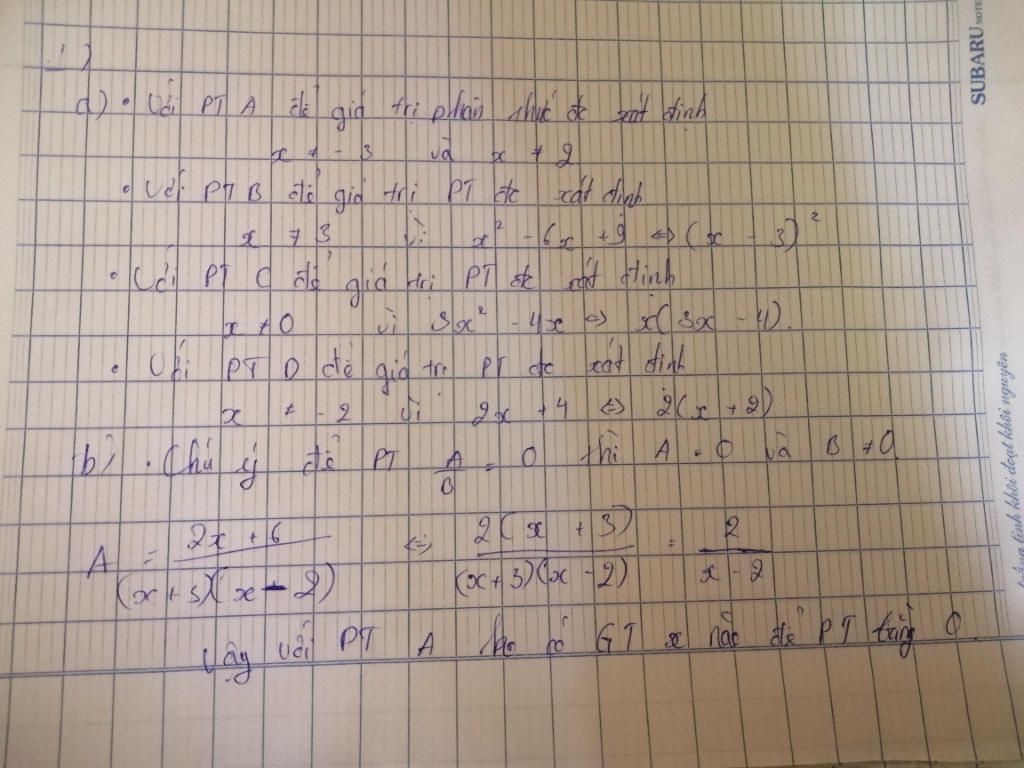 1)
a) • Với PT A để giá trị phân thức đc xát định
x ≠ -3 và x ≠ 2
• Với PT B để giá trị PT đc xát định
x ≠ 3 vì x² - 6x + 9 ⇔ (x - 3)²
• Với PT C để giá trị PT đc xát định
x ≠ 0 vì 3x² - 4x ⇔ x(3x - 4).
• Với PT D để giá trị PT đc xát định
x ≠ -2 vì 2x + 4 ⇔ 2(x + 2)
b) • Chú ý để PT A/B = 0 thì A = 0 và B ≠ 0
A = 2x + 6/(x+3)(x-2) ⇔ 2(x + 3)/(x+3)(x-2) = 2/x-2
Vậy với PT A ko có GT x nào để PT bằng 0
SUBARU NOTE
khôi đoạt khôi nguyên